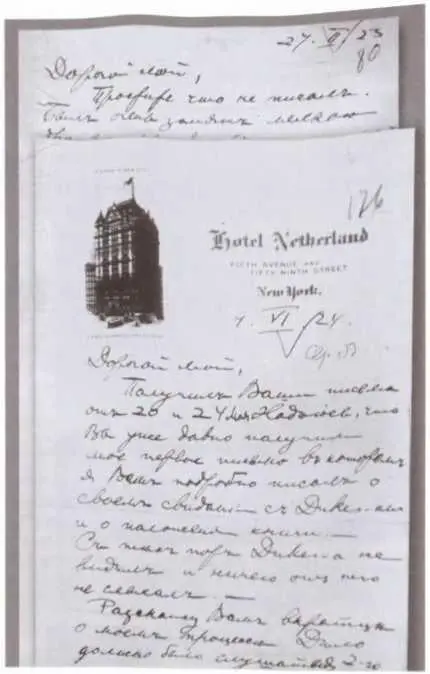 27. III/23
80
Дорогой мой,
Простите что не писалъ.
Былъ очень занятъ мелкою
126
Hotel Netherland
FIFTH AVENUE AND
FIFTY NINTH STREET
New York.
VI /24.
Дорогой мой,
Получилъ Ваши письма
отъ 20 и 24 Мая Надѣюсь, что
Вы уже давно получили
мое первое письмо въ которомъ
я Вамъ подробно писалъ о
своемъ свиданіи съ Duken-омъ
и о положеніи книги. —
Съ тѣхъ поръ Duken-а не
видѣлъ и ничего отъ него
не слыхалъ. —
Разскажу Вамъ вкратцѣ
о моемъ процессѣ Дѣло
должно было слушаться 2-го